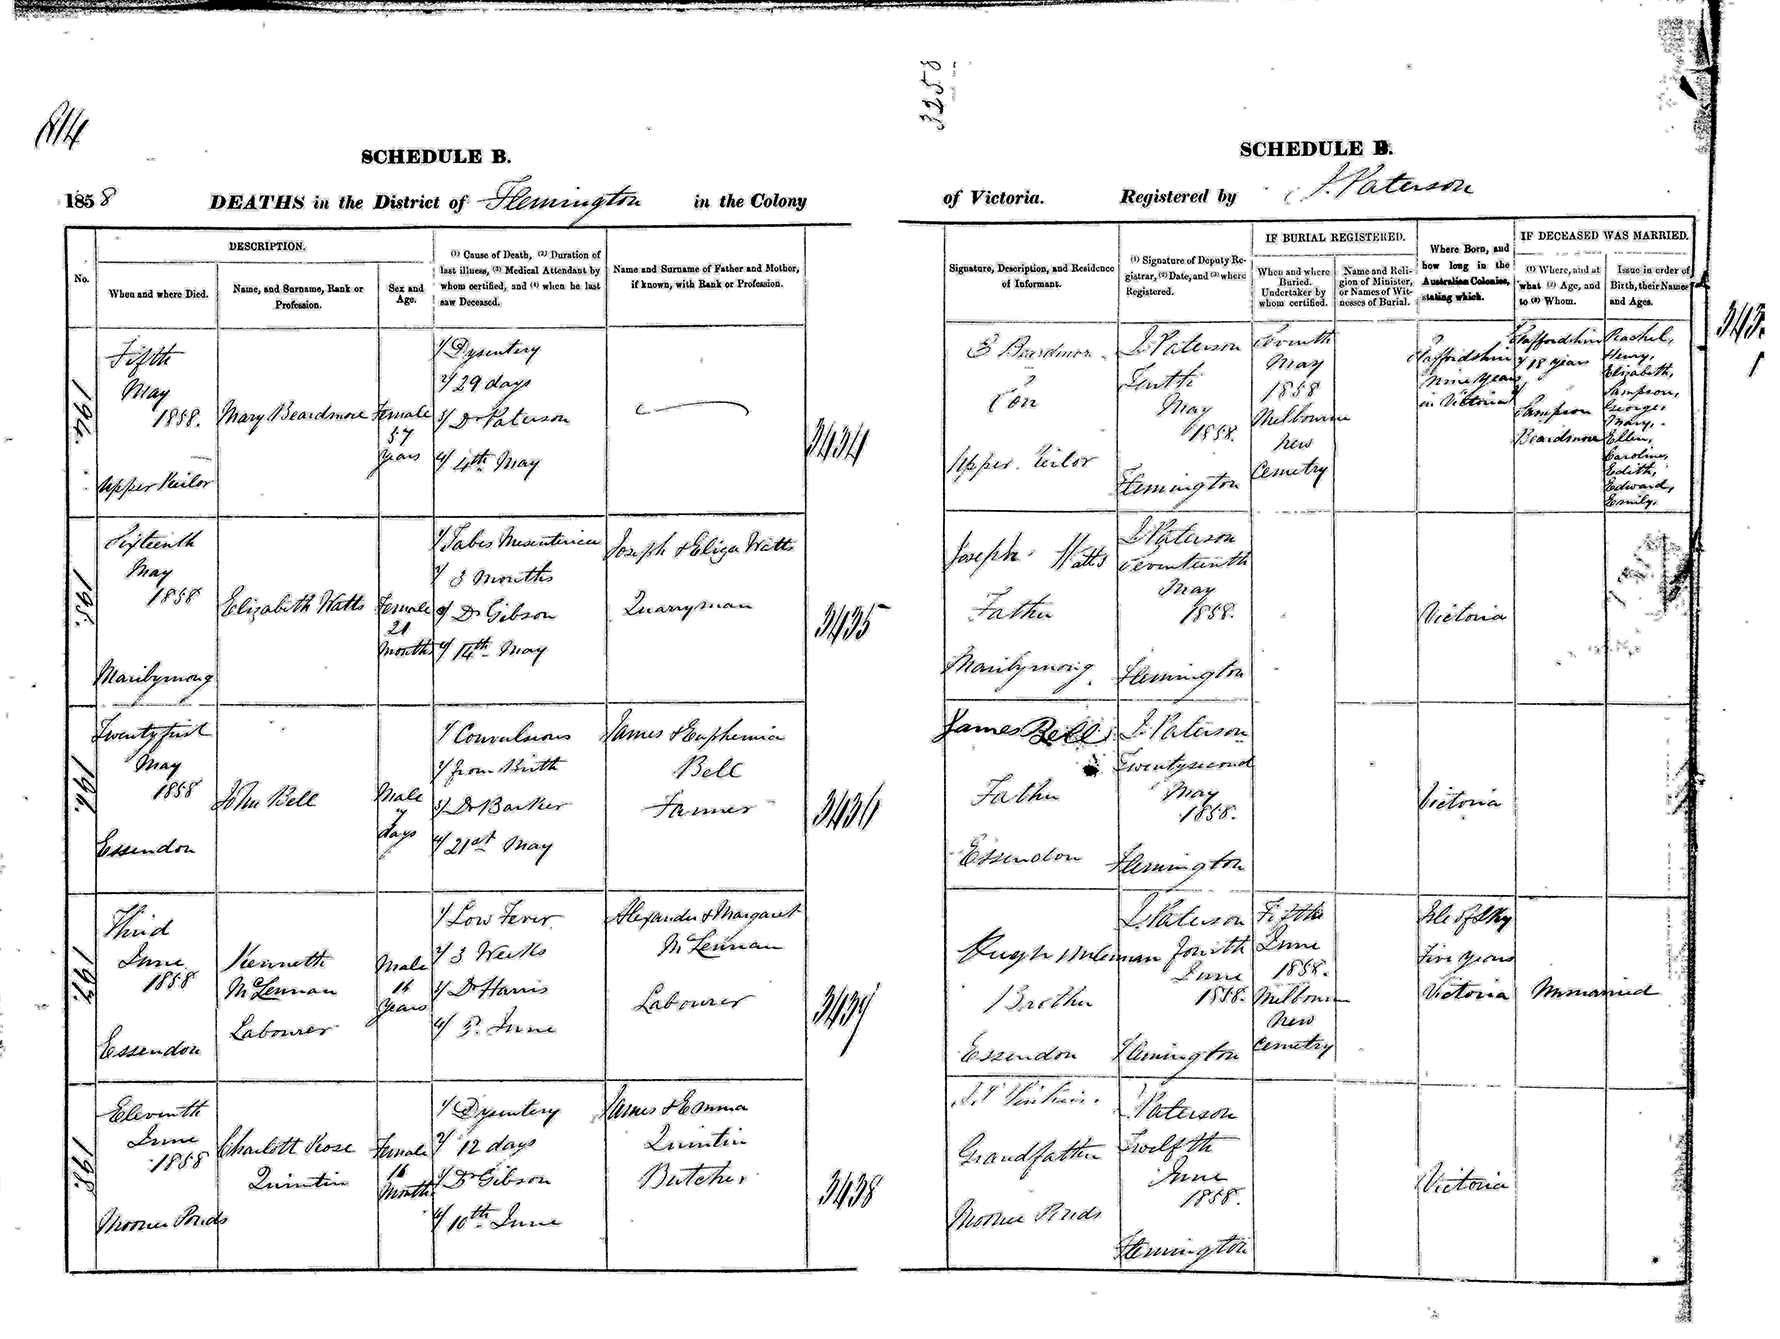 814
3258
SCHEDULE B.
SCHEDULE B.
1858 DEATHS in the District of Flemington in the Colony
of Victoria. Registered by J. Paterson
No.
DESCRIPTION.
When and where Died.
Name, and Surname, Rank or
Profession.
Sex and
Age.
(1) Cause of Death, (2) Duration of
last illness, (3) Medical Attendant by
whom certified, and (4) when he last
saw Deceased.
Name and Surname of Father and Mother,
if known, with Rank or Profession.
Signature, Description, and Residence
of Informant.
(1) Signature of Deputy Re-
gistrar, (2) Date, and (3) where
Registered.
IF BURIAL REGISTERED.
When and where
Buried.
Undertaker by
whom certified.
Name and Reli-
gion of Minister,
or Names of Wit-
nesses of Burial.
Where Born, and
how long in the
Australian Colonies,
stating which.
IF DECEASED WAS MARRIED.
(1) Where, and at
what (2) Age, and
to (3) Whom.
Issue in order of
Birth, their Names
and Ages.
194.
Fifth
May
1858.
Upper Keilor
Mary Beardmore
Female
57
years
1/ Dysentery
2/ 29 days
3/ Dr Paterson
4/ 4th May
3434
E Beardmore
Son
Upper Keilor
J. Paterson
Tenth
May
1858.
Flemington
Seventh
May
1858
Melbourne
New
Cemetry
Staffordshire
Nine years
in Victoria
Staffordshire
2/ 18 years
Sampson
Beardmore
Rachel,
Henry,
Elizabeth,
Sampson,
George,
Mary,
Ellen,
Caroline,
Edith,
Edward,
Emily.
195.
Sixteenth
May
1858
Maribymong
Elizabeth Watts
Female
21
months
1/ Tabes Mesenterica
2/ 3 Months
3/ Dr Gibson
4/ 14th May
Joseph & Eliza Watts
Quarryman
3435
Joseph Watts
Father
Maribymong
J. Paterson
Seventeenth
May
1858.
Flemington
Victoria
196.
Twentyfirst
May
1858
Essendon
John Bell
Male
7
days
1/ Convulsions
2/ from Birth
3/ Dr Barker
4/ 21st May
James & Euphemia
Bell
Farmer
3436
James Bell
Father
Essendon
J. Paterson
Twentysecond
May
1858.
Flemington
Victoria
197.
Third
June
1858
Essendon
Kenneth
McLennan
Labourer
Male
16
years
1/ Low Fever
2/ 3 Weeks
3/ Dr Harris
4/ 3d June
Alexander & Margaret
McLennan
Labourer
3437
Hugh McLennan
Brother
Essendon
J. Paterson
Fourth
June
1858.
Flemington
Fifth
June
1858.
Melbourne
New
Cemetry
Isle of Sky
Five years
Victoria
Unmarried
198.
Eleventh
June
1858
Moonee Ponds
Charlott Rose
Quintin
Female
16
Months
1/ Dysentery
2/ 12 days
3/ Dr Gibson
4/ 10th June
James & Emma
Quintin
Butcher
3438
Grandfather
Moonee Ponds
J. Paterson
Twelfth
June
1858.
Flemington
Victoria